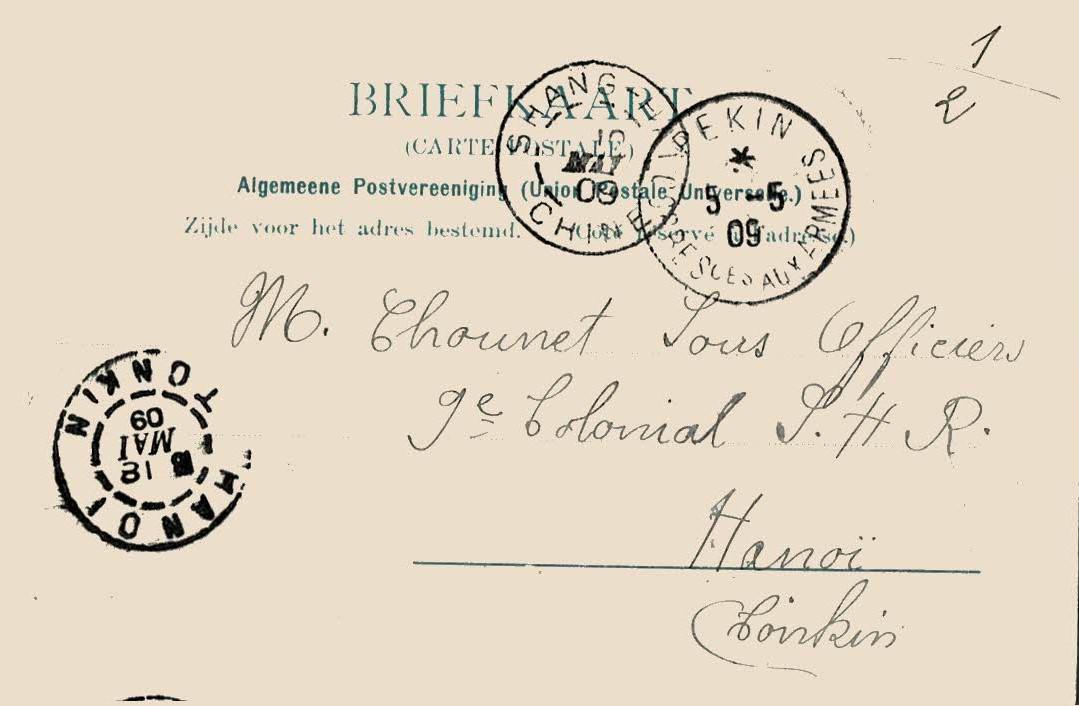 1
2
BRIEFKAART
(CARTE POSTALE)
Algemeene Postvereeniging (Union Postale Universelle.)
Zijde voor het adres bestemd. (Côté réservé à l'adresse.)
SHANG-HAI
10
MAI
09
CHINE
PEKIN
*
5 -5
09
AUX ARMEES
M. Chounet Sous Officiers
9e Colonial S. H R.
Hanoï
Tonkin
HANOI
18
MAI
09
TONKIN